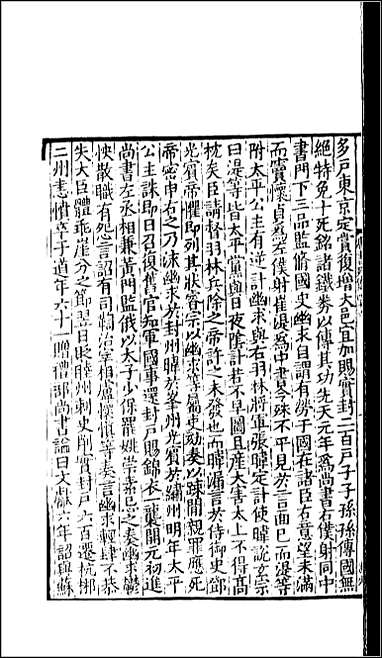 多戶東京定賞復增大邑宜加賜實封二百戶子子孫孫傳國無
絕特免十死銘諸鐵券以傳其功先天元年爲尚書右僕射同中
書門下三品監脩國史幽求自謂有勞于國在諸臣右意望未滿
而竇懷貞爲左僕射崔湜爲中書令殊不平見於言面已而湜等
附太平公主有逆計幽求與右羽林將軍張暐定計使暐說玄宗
曰湜等皆太平黨與日夜陰計若不早圖且產大害太上不得高
枕矣臣請督羽林兵除之帝許之未發也而暐漏言於侍御史鄧
光賓帝懼即列其狀睿宗以幽求等屬吏劾奏以疎間親罪應死
帝密申右之乃流幽求於封州暐於峯州光賓於繡州明年太平
公主誅即日召復舊官知軍國事還封戶賜錦衣一襲開元初進
尚書左丞相兼黃門監俄以太子少保罷姚崇素忌之奏幽求鬱
怏散職有怨言詔有司鞫治宰相盧懷愼等奏言幽求輕肆不恭
失大臣體乖崖分之節翌日貶睦州刺史削實封戶六百遷杭郴
二州恚憤卒于道年六十一贈禮部尚書諡曰文獻六年詔與蘇